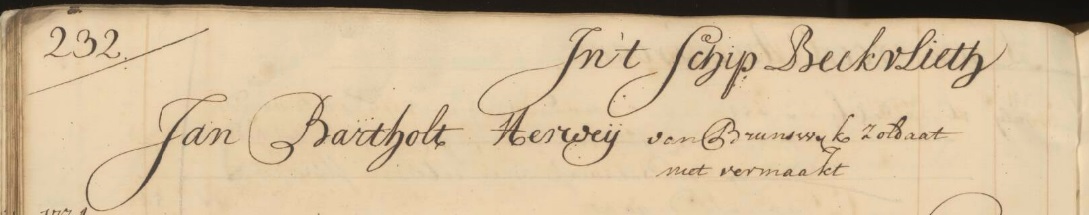 232. In't Schip BeekvLieth
Jan Bartholt Herweÿ van Brunswyk Zoldaat
niet vermaakt